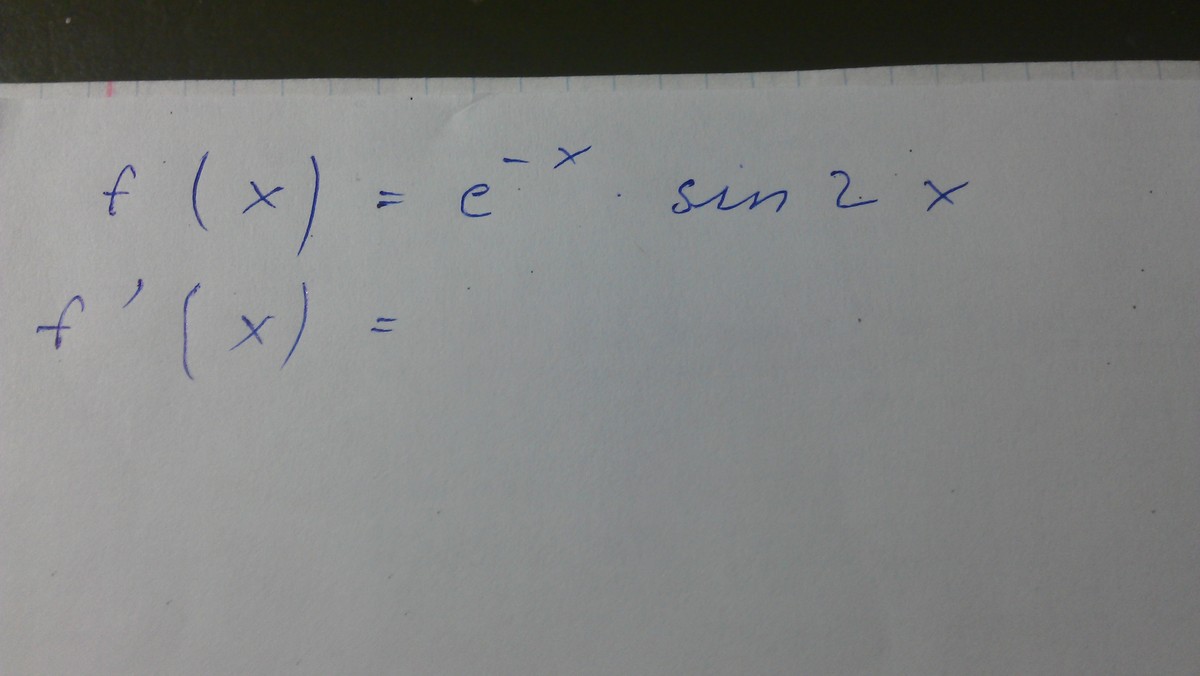 f (x) = e^{-x} · sin 2 x
f ' (x) =